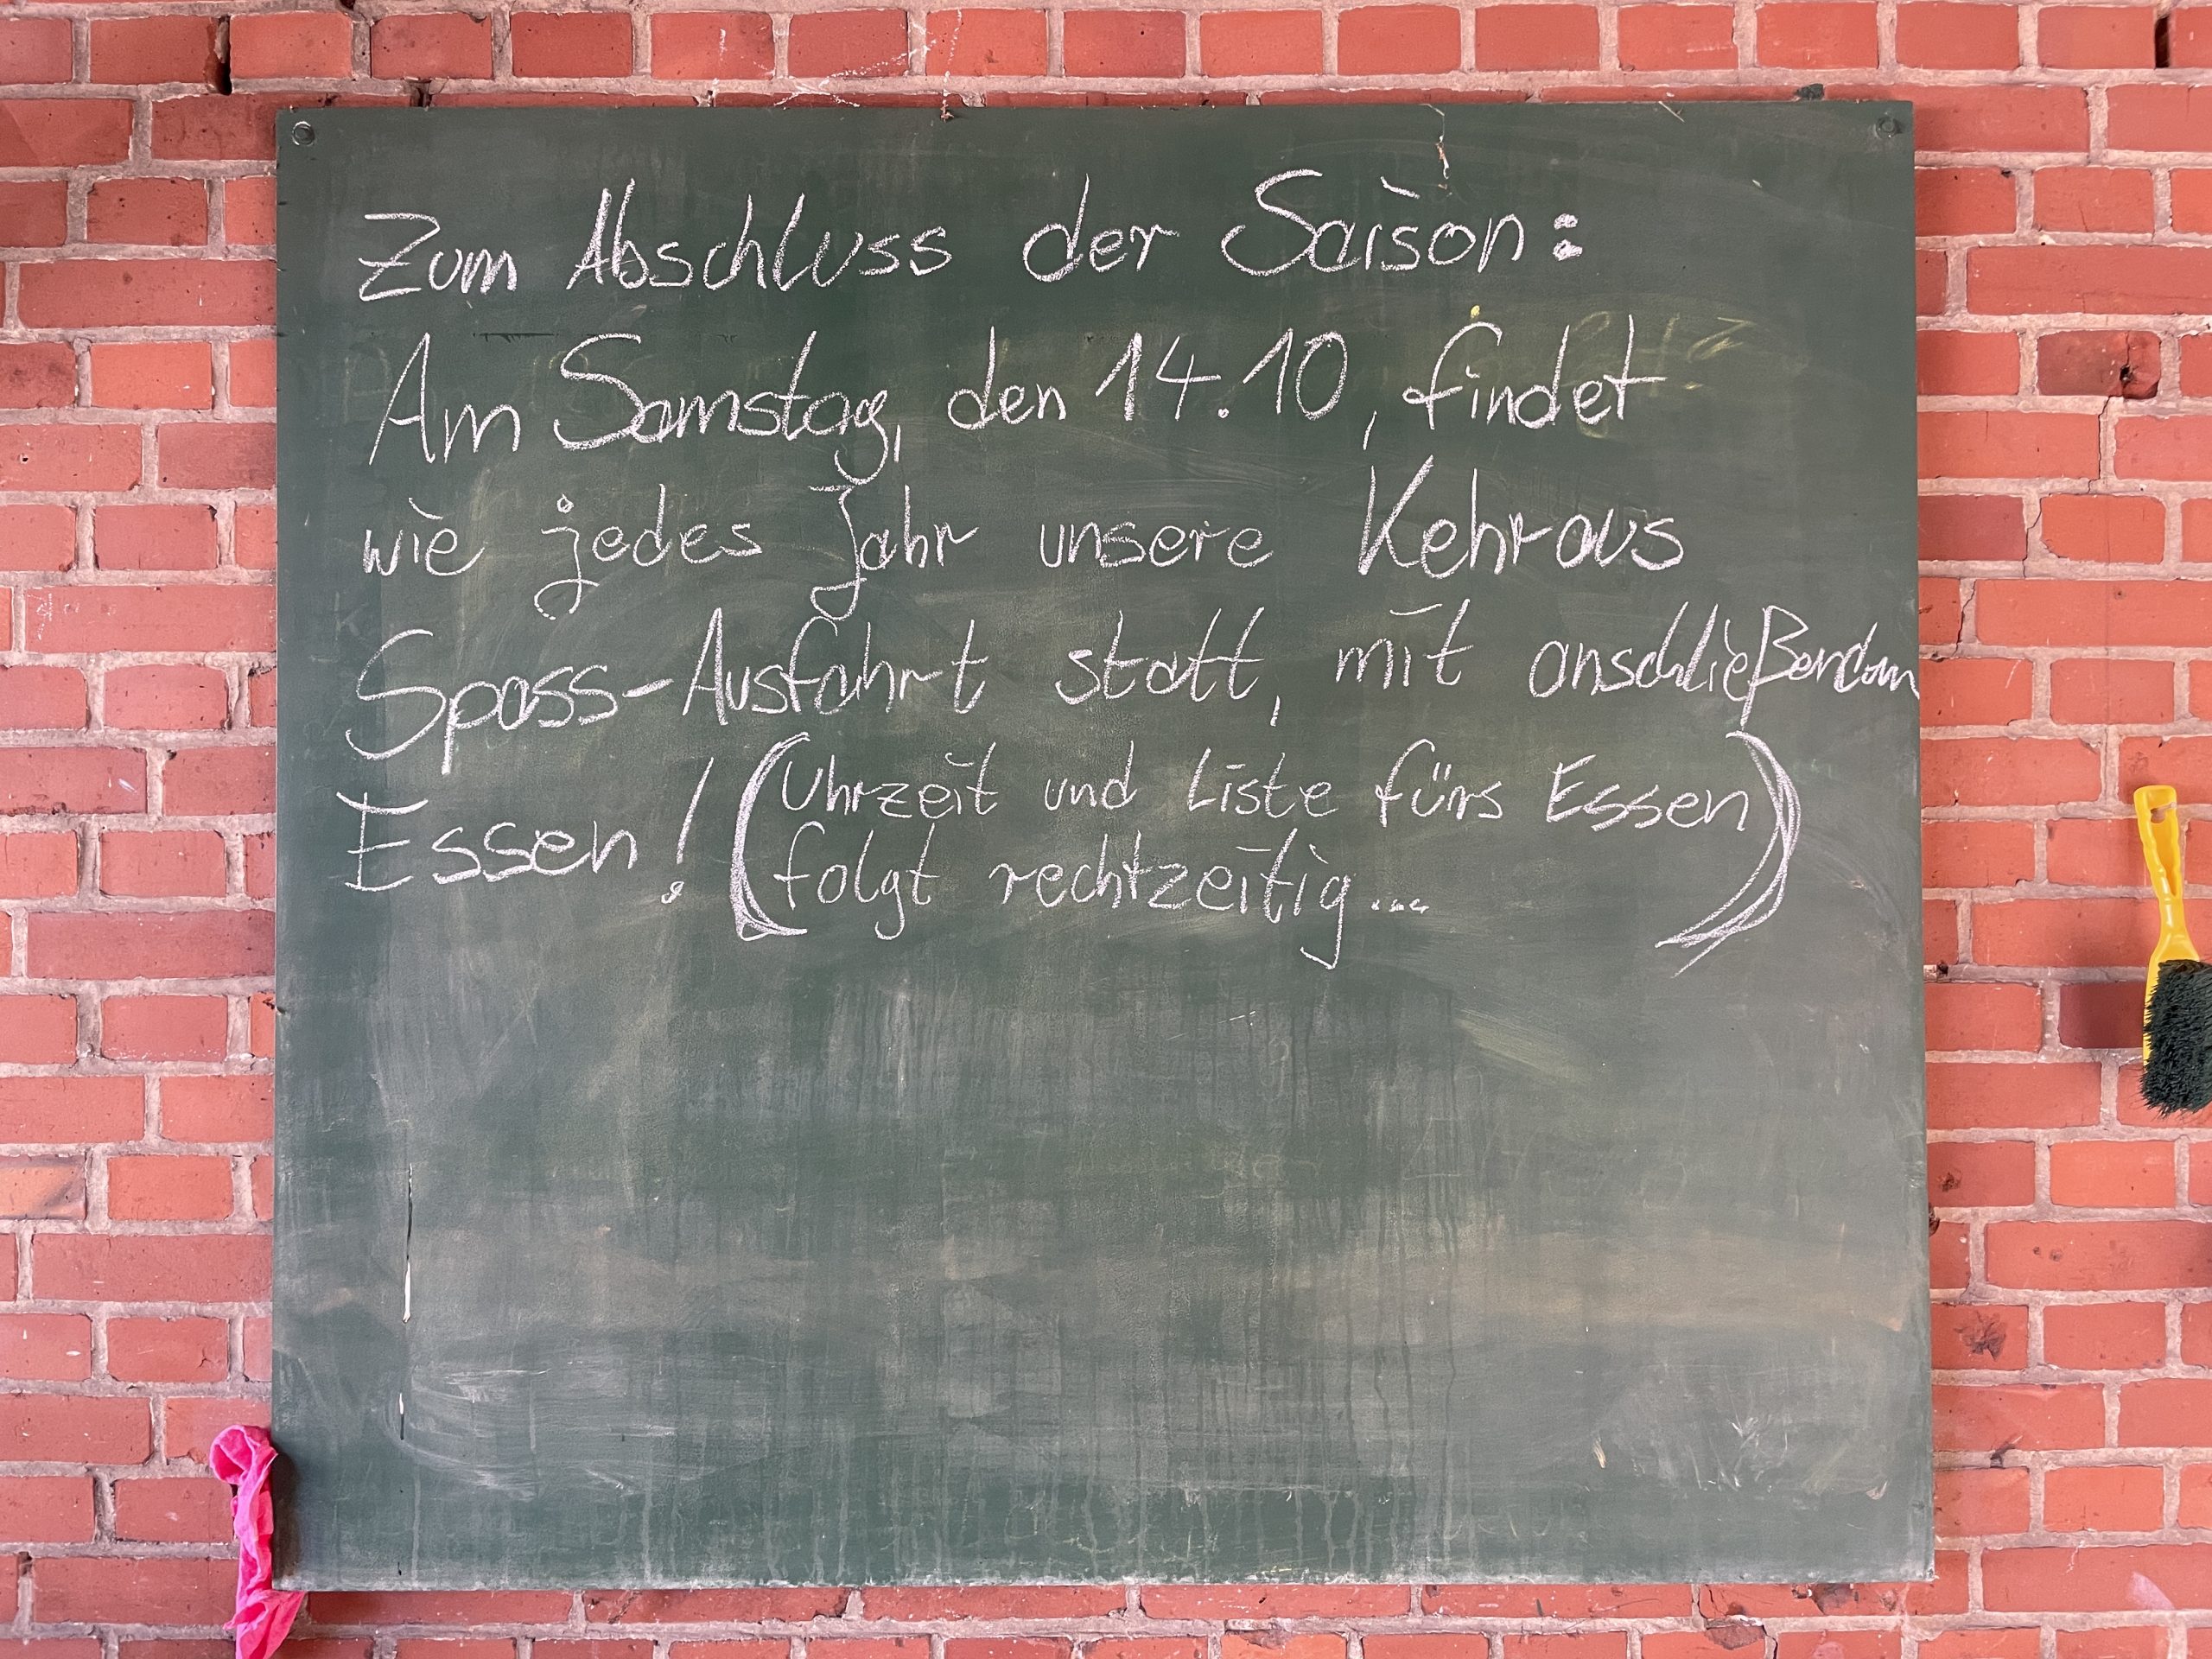 Zum Abschluss der Saison:
Am Samstag, den 14.10, findet
wie jedes Jahr unsere Kehraus
Spass-Ausfahrt statt, mit anschließendem
Essen! (Uhrzeit und Liste fürs Essen)
folgt rechtzeitig...